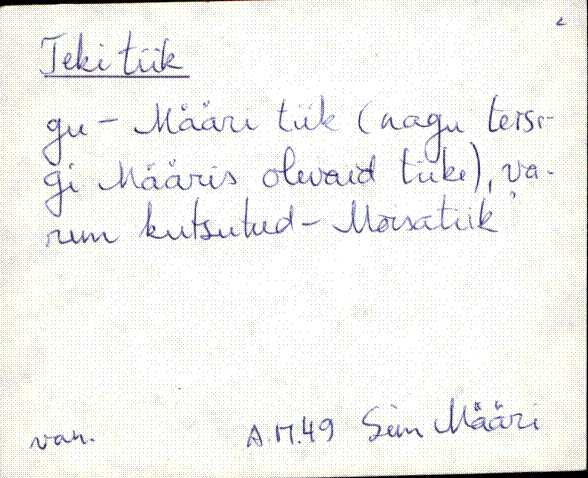 Teki tiik
gu - Määri tiik (nagu teisi-
gi Määris olevaid tiike), va-
rem kutsutud - Mõisatiik
van. A.M.49 Sim Määri